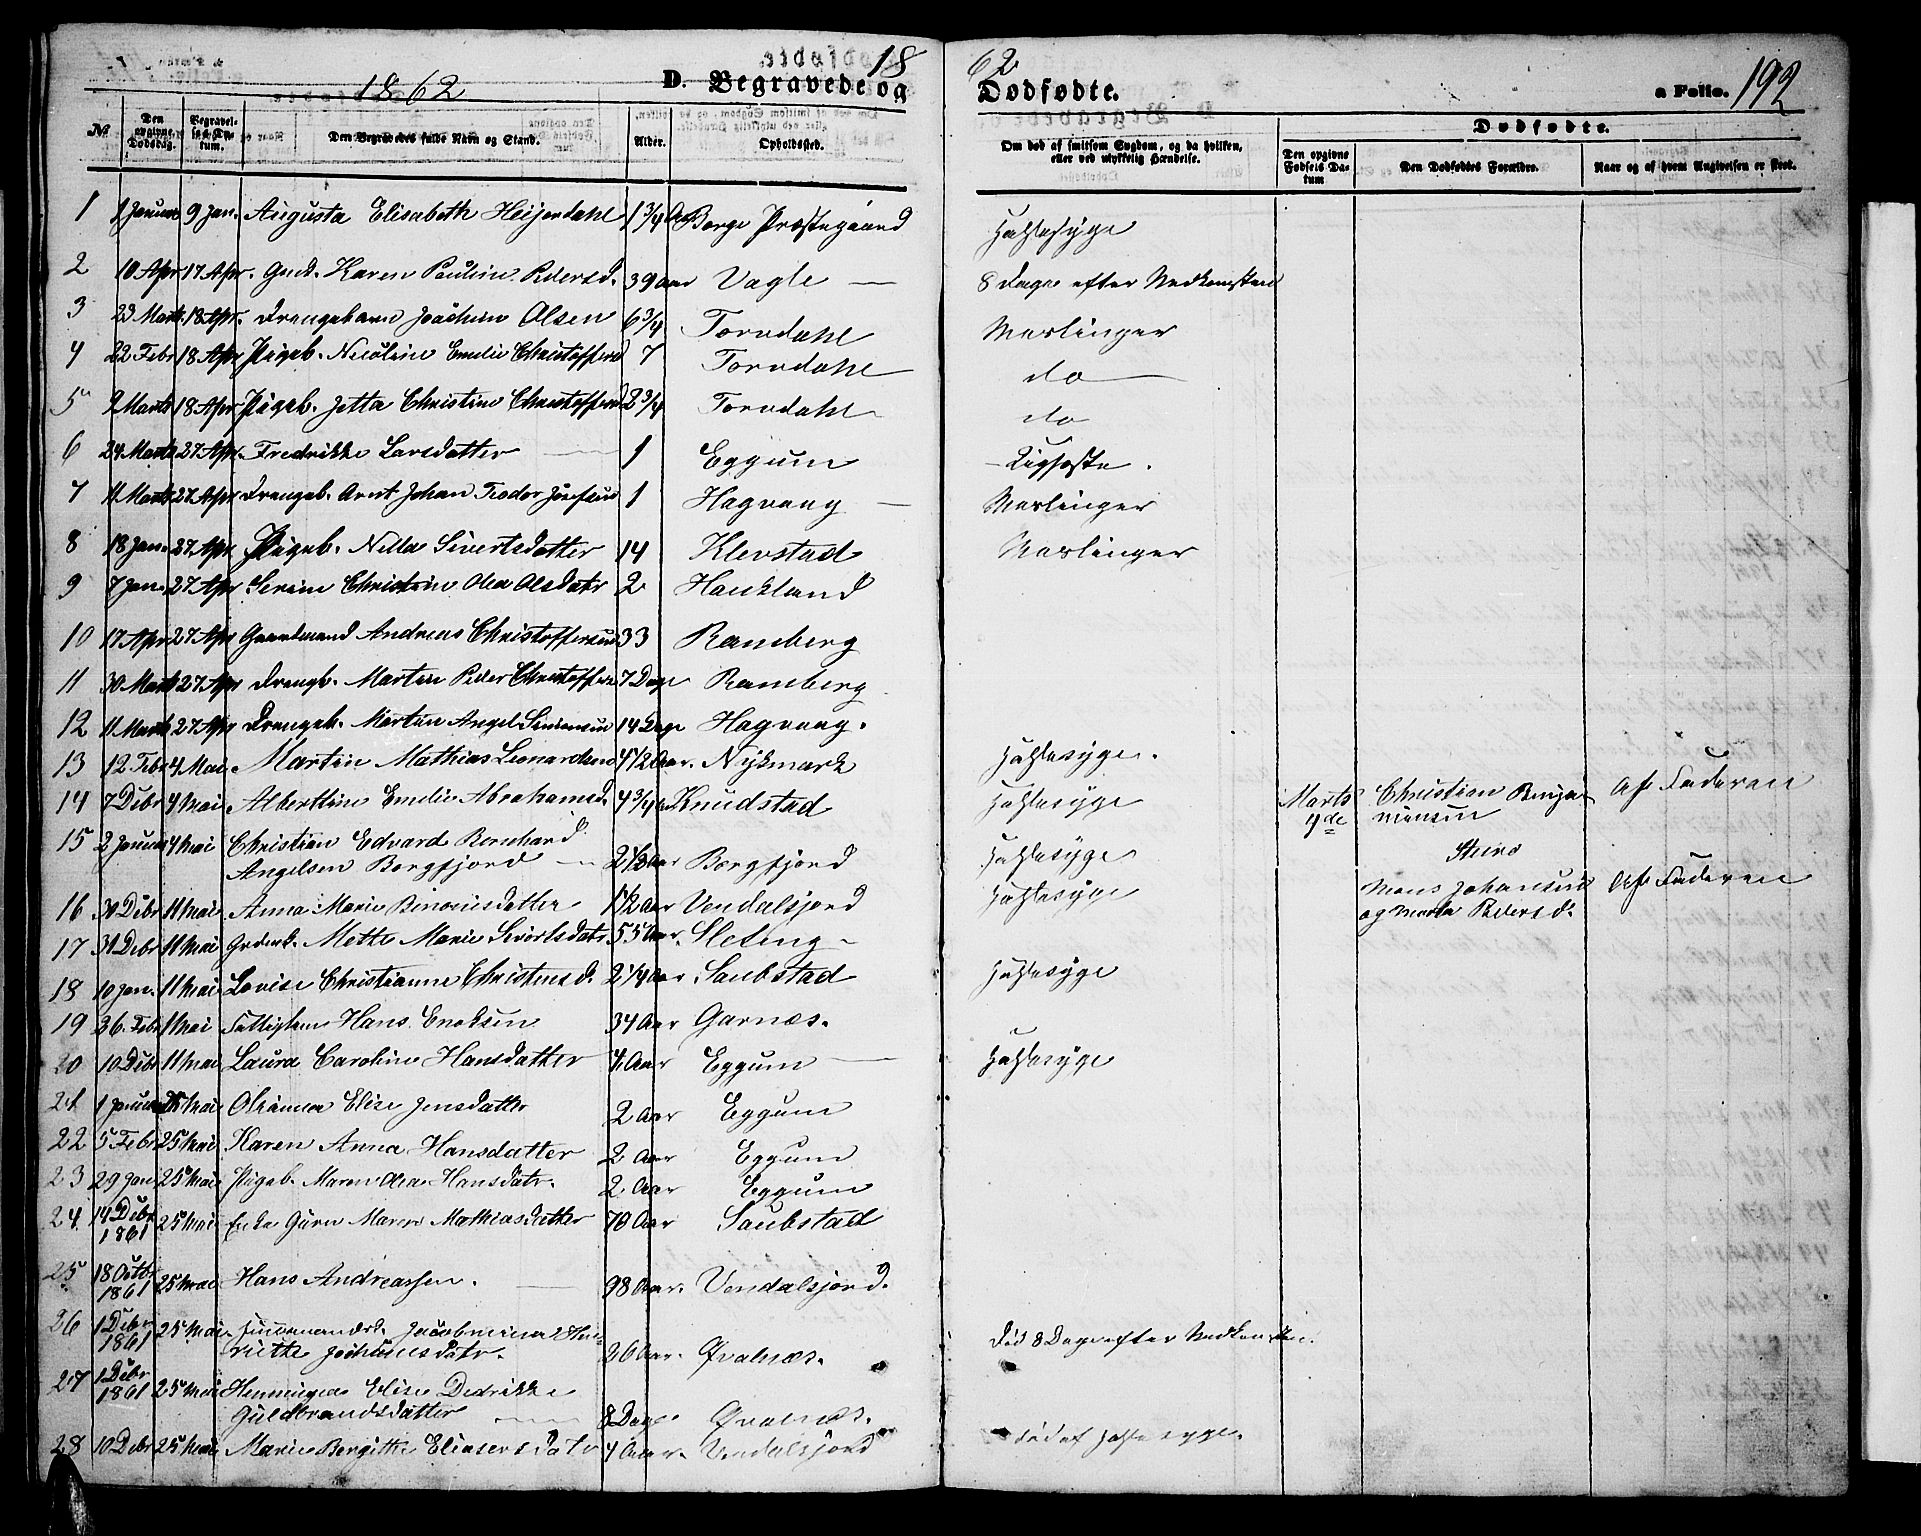 1862 D. Begravede og 18
62 Dødfødte. a Folio. 192
No Den opgivne Dødsdag. Begravelses Datum. Den Begravedes fulde Navn og Stand. Alder. Opholdssted. Om død af smitsom Sygdom, og da hvilken, eller ved ulykkelig Hændelse. Dødfødte. Den opgivne Fødsels Datum Den Dødfødtes Forældre. Naar og af hvem Angivelsen er skeet.
1 1 Januar 9 Jan. Augusta Elisabeth Heyerdahl 1 3/4 Aar Borge Præstegaard Halslesyge
2 10 Apr 17 Apr. Karen Pauline Pedersd. 39 Aar Vagle 8 Dage efter Nedkomsten
3 23 Marts 18 Apr. Drengebarn Joachim Olsen 6 3/4 Torvdahl Meslinger
4 22 Febr 18 Apr Pigeb. Nicoline Emelie Christoffersd 7 Torvdahl do
5 2 Marts 18 Apr Pigeb. Jetta Christine Christoffersd 2 3/4 Torvdahl do
6 24 Marts 27 Apr. Fredrikke Larsdatter 1 Eggum
7 11 Marts 27 Apr Drengeb. Arnt Johan Teodor Josefsen 1 Hagvaag Meslinger
8 18 Jan. 27 Apr Pigeb. Nilla Sivertsdatter 14 Klevstad Meslinger
9 7 Jan. 27 Apr Serine Christine Olea Olsdatr 2 Haukland
10 17 Apr 27 Apr Gaardmand Andreas Christoffersen 33 Ramberg
11 30 Marts 27 Apr Drengb. Martin Peder Christoffersen 7 Dage Ramberg
12 11 Marts 27 Apr Drengeb. Martin Angel Simonsen 14 Dage Hagvaag.
13 12 Febr 4 Mai Martin Mathias Leonardsen 4 1/2 Aar. Nykmark Halslesyge.
14 7 Debr 4 Mai Alberttine Emelie Abrahamsd. 4 3/4 Knudstad Halslesyge Marts 4de Christian Benjaminsen Af Faderen
15 2 Januar 4 Mai Christian Edvard Bernhard
Angelsen Borgfjord 2 1/2 Aar Borgfjord Halslesyge
16 30 Debr 11 Mai Anna Marie Benonisdatter 1 1/2 Aar Vendalsjord Halslesyge Mons Johansen Af Faderen
og Marta Pedersd.
17 31 Debr 11 Mai Mette Marie Sivertsdatr 55 Aar. Sleting
18 10 Jan. 11 Mai Lovise Christianne Christensd. 2 1/4 Aar Saubstad Halslesyge
19 26 Febr 11 Mai Fattiglem Hans Enoksen 34 Aar Garnæs.
20 10 Debr 11 Mai Laura Caroline Hansdatter 4 Aar Eggum Halslesyge
21 1 Januar 25 Mai Elise Jensdatter 2 Aar Eggum
22 5 Febr 25 Mai Karen Anna Hansdatter 2 Aar Eggum
23 29 Jan 25 Mai Pigeb. Maren Olea Hansdatr. 2 Aar Eggum
24. 14 Debr 1861 25 Mai Enke Maren Mathiasdatter 70 Aar Saubstad
25 18 Octbr 1861 25 Mai Hans Andreassen. 98 Aar. Vendalsjord.
26 1 Debr 1861 25 Mai. Jacobmina Hen-
riette Johansdatr. 26 Aar. Qvalnæs. Død 8 Dage efter Nedkomsten.
27 1 Debr 1861 25 Mai Henningea Elise Dedrikke
Guldbrandsdatter 8 Dage Qvalnæs.
28 10 Debr 25 Mai Marie Bergitte Eliasersdatr 4 Aar. Vendalsjord Død af Halslesyge.